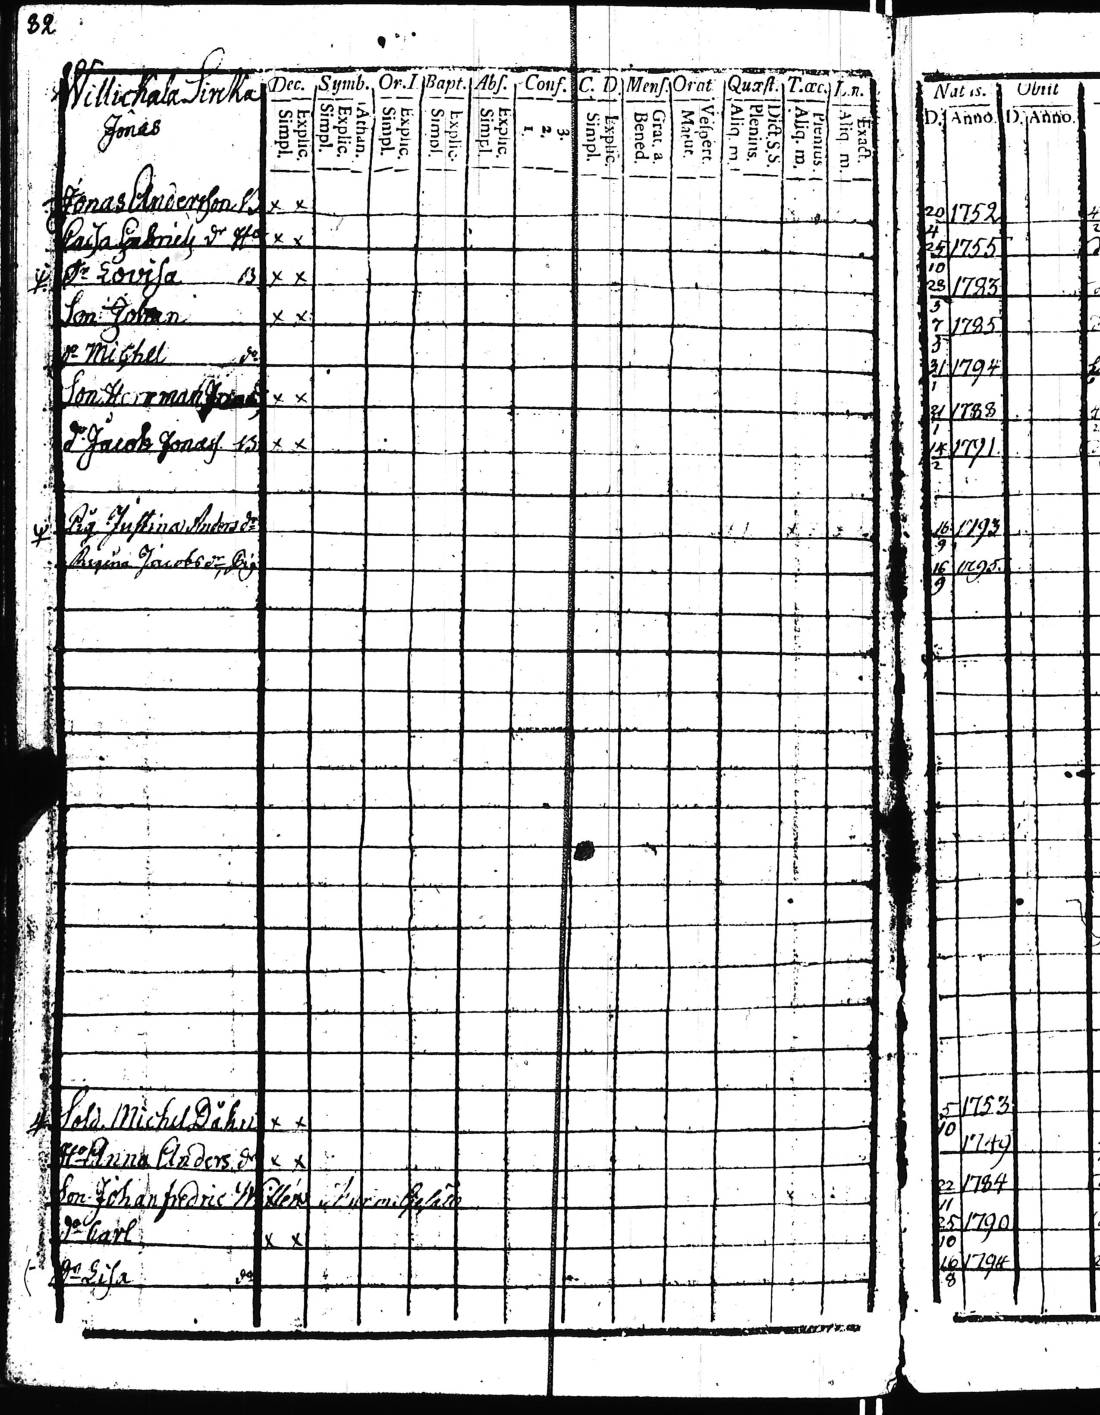 82
Willickala Sircka
Jonas
Dec. Symb. Or.I. Bapt. Abſ. Conf. C. D. Menſ. Orat. Quæſt. T.œc. L.n.
Simpl. Explic. Simpl. Explic. Athan. Simpl. Explic. Simpl. Explic. Simpl. Explic. 1. 2. 3. Simpl. Explic. Bened. Grat. a. Matut. Veſpert. Aliq. m. Plenius. Dict. S.S. Aliq. m. Plenius. Aliq. m. Exact.
Natus. Obiit
D. Anno. D. Anno.
Jonas Andersson B x x 20/4 1752
Caisa Gabriels dr x x 25/10 1755
Dr Lovisa B x x 28/3 1783
Son Johan x x 7/3 1785
do Michel do 31/1 1794
Son Herrman x x 21/1 1788
do Jacob Jonass B x x 14/2 1791
Pig. Justina Anders dr 16/9 1793
Regina Jacobs dr Pig 16/9 1795.
Sold. Michel x x 5/10 1753
Anna Anders dr x x 1749
Son Johan fredric 22/11 1784
do Carl x x 25/10 1790
do Lisa do 16/8 1794